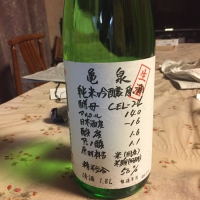 亀泉
生酒
純米吟醸 原酒
酵母 CEL-24
アルコール 14.0
日本酒度 -16
酸度 1.6
アミノ酸 1.1
原材料名 米(国産)
精米歩合 50%
清酒 1.8L